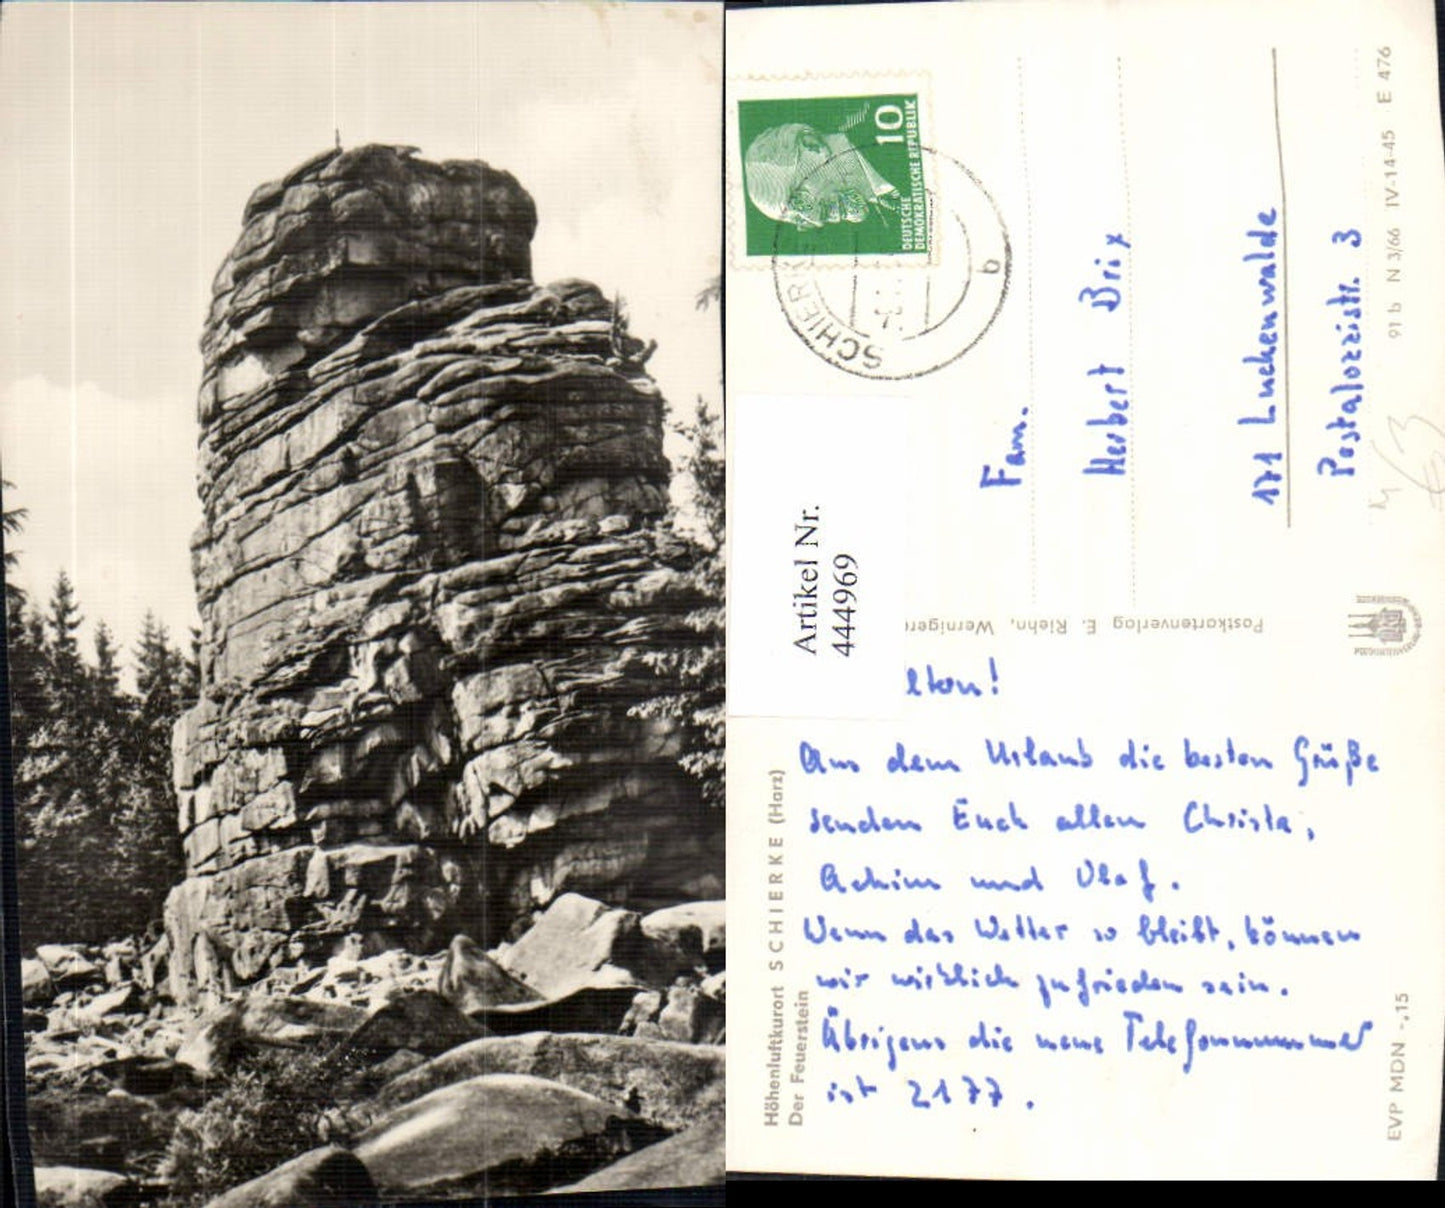 10
DEUTSCHE
DEMOKRATISCHE REPUBLIK
SCHIERKE
b
Fam.
Herbert Brix
171 Luckenwalde
Pestalozzistr. 3
91 b N 3/66 IV-14-45 E 476
Artikel Nr.
444969
Postkartenverlag E. Riehn, Wernigero
ltern!
Aus dem Urlaub die besten Grüße
senden Euch allen Christa,
Achim und Olaf.
Wenn das Wetter so bleibt, können
wir wirklich zufrieden sein.
Übrigens die neue Telefonnummer
ist 2177.
Höhenluftkurort SCHIERKE (Harz)
Der Feuerstein
EVP MDN -,15